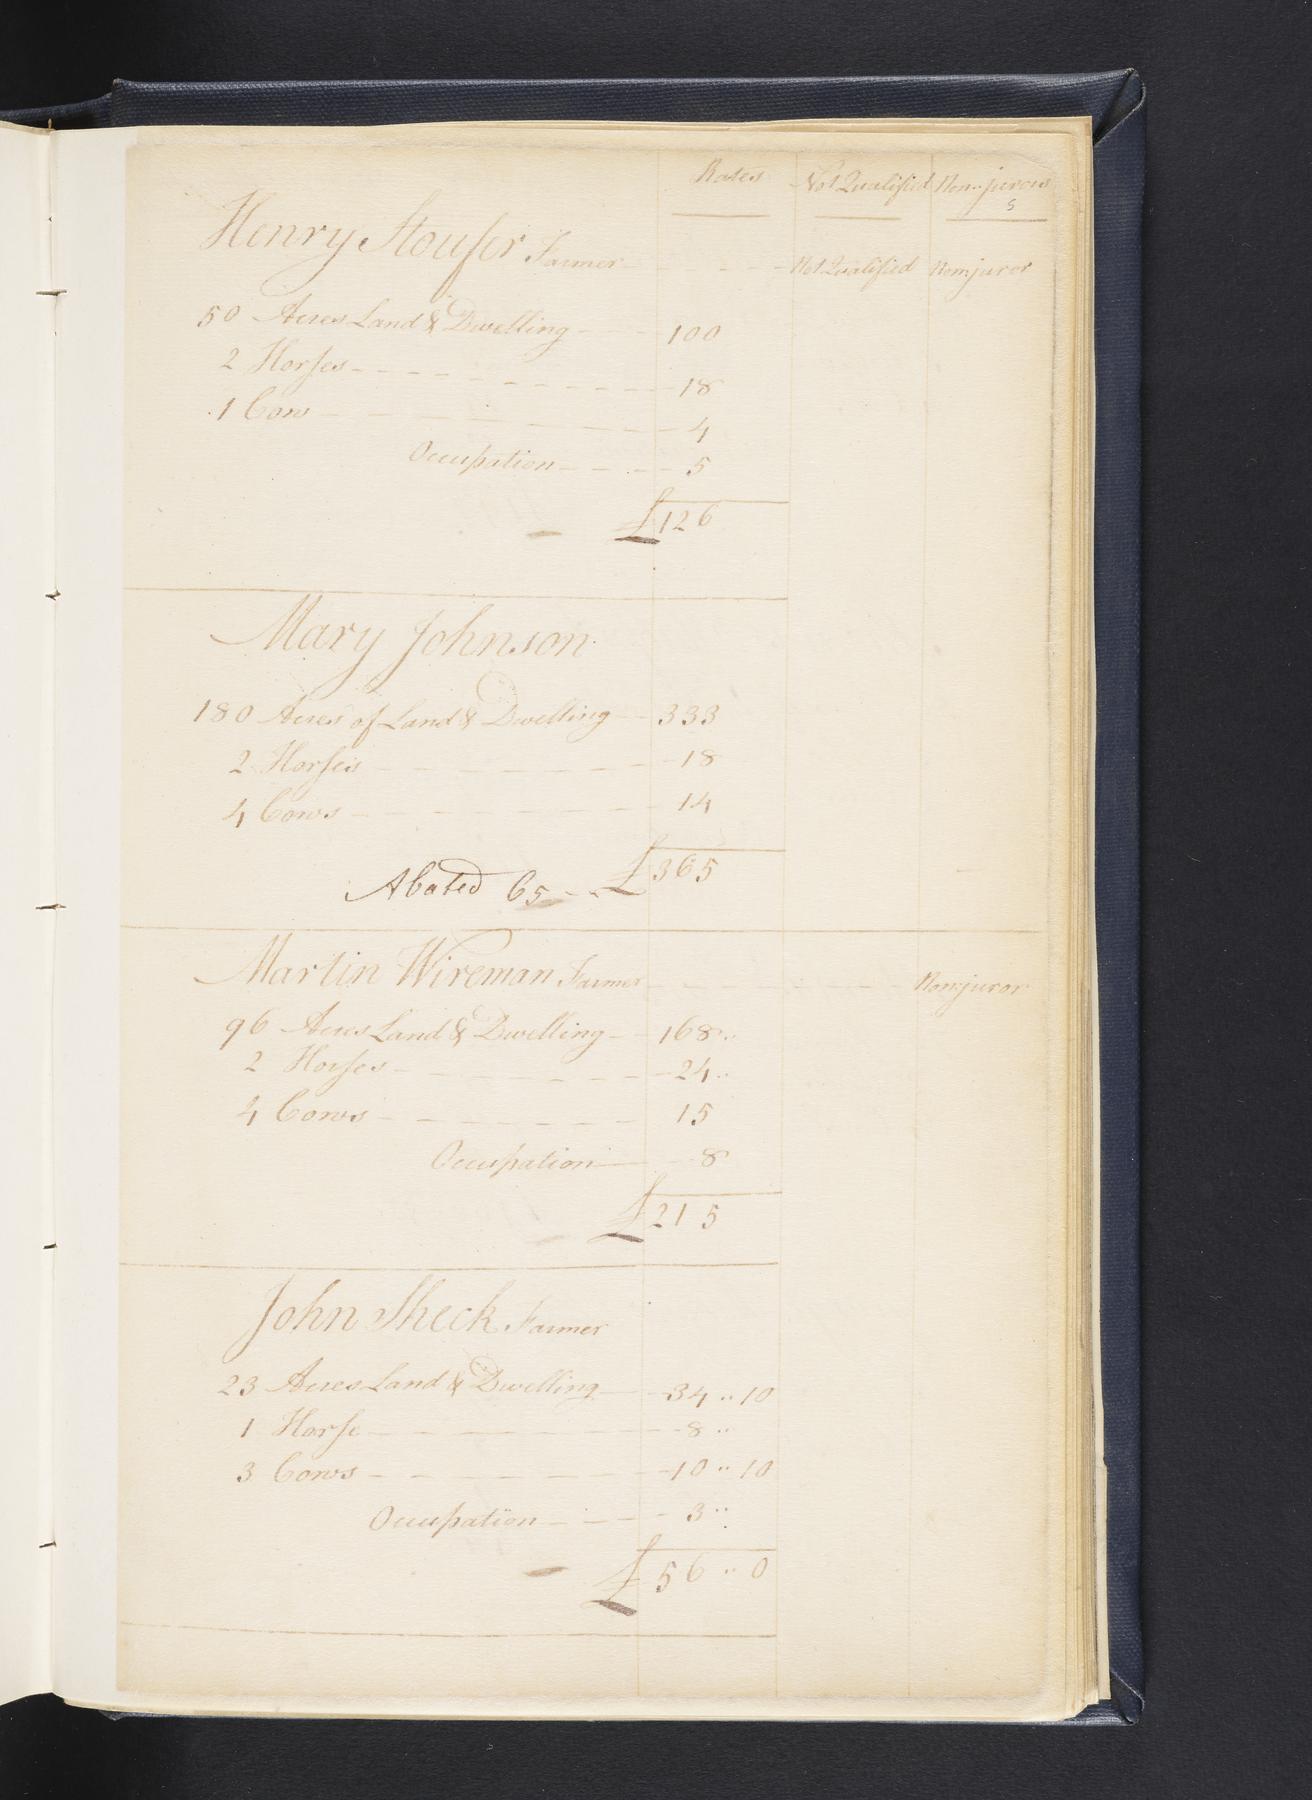 Rates Not Qualified Non-jurors
5
Henry Stoufer Farmer Not Qualified Nonjuror
50 Acres Land & Dwelling 100
2 Horses 18
1 Cow 4
Occupation 5
£126
Mary Johnson
180 Acres of Land & Dwelling 333
2 Horses 18
4 Cows 14
Abated 65 £365
Martin Wireman Farmer Nonjuror
96 Acres Land & Dwelling 168
2 Horses 24
4 Cows 15
Occupation 8
£215
John Sheck Farmer
23 Acres Land & Dwelling 34 .. 10
1 Horse 8 ..
3 Cows 10 .. 10
Occupation 3 ..
£56 .. 0